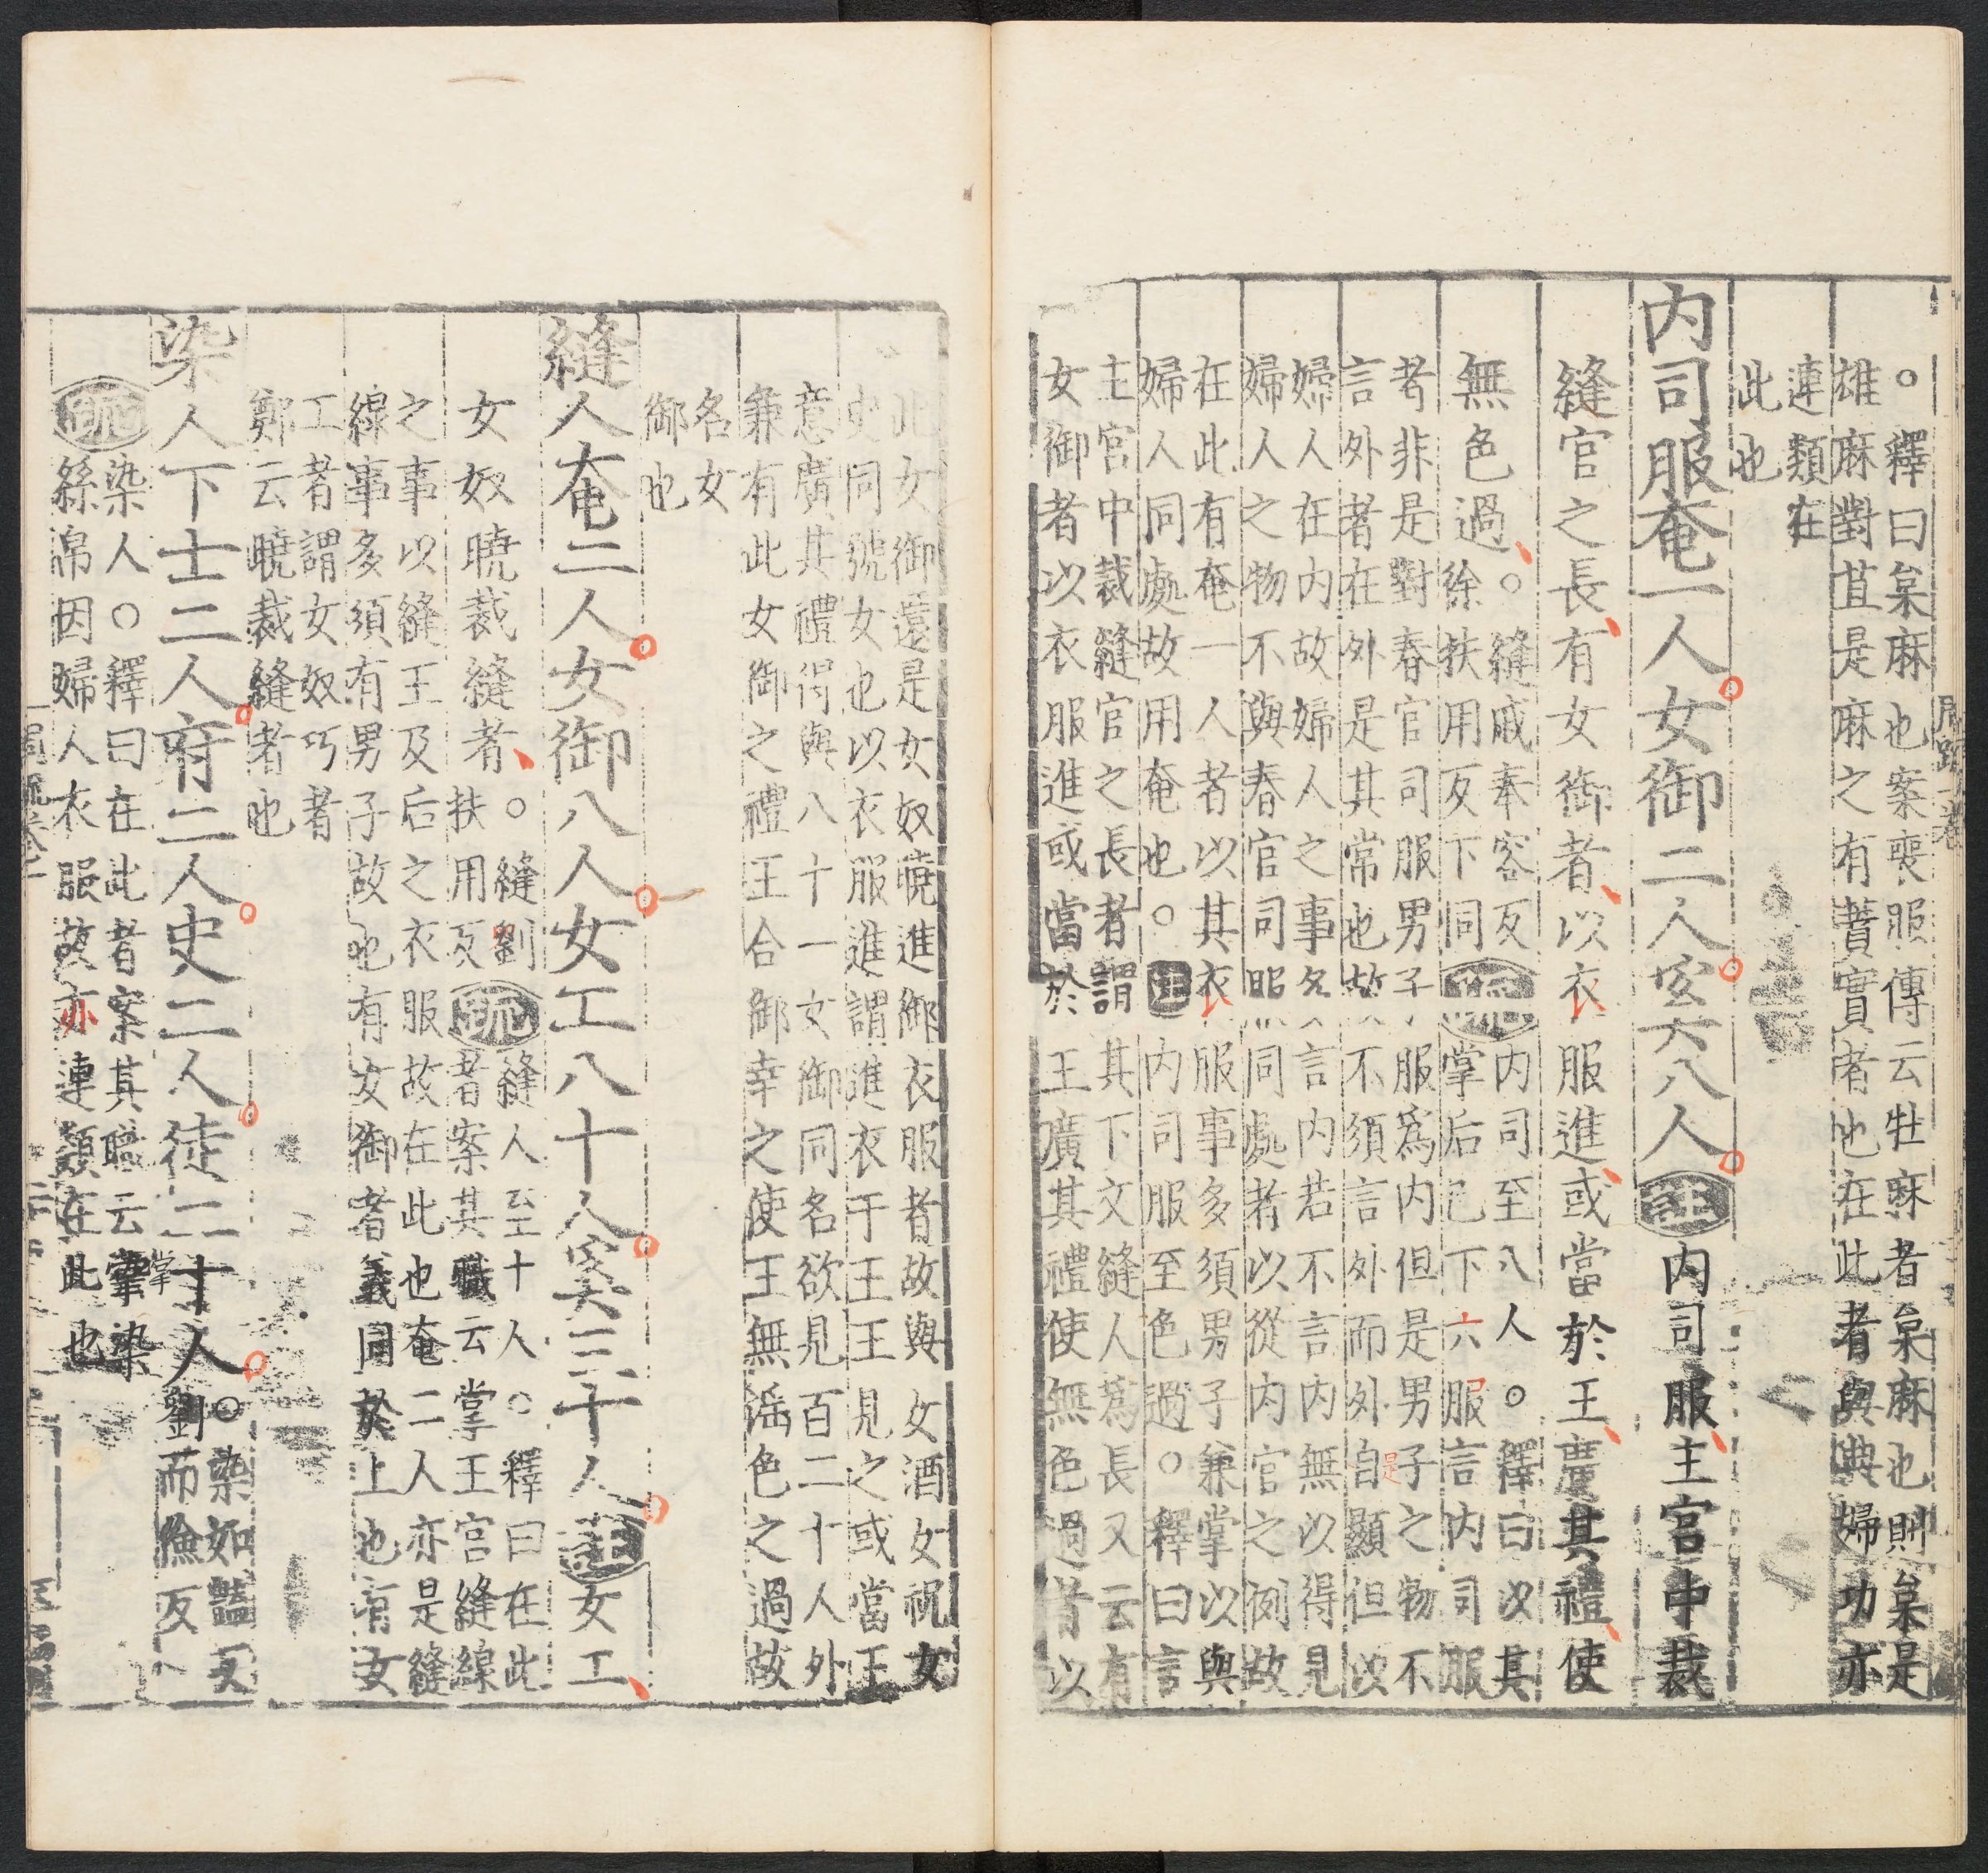 。釋曰枲麻也案喪服傳云牡麻者枲麻也則枲是
雄麻對苴是麻之有蕡實者也在此者與典婦功亦
連類在
此也
内司服奄一人女御二人奚八人註内司服主宮中裁
縫官之長有女御者以衣服進或當於王廣其禮使
無色過。縫戚奉容反
徐扶用反下同疏
内司至八人。釋曰以其
掌后已下六服言内司服
者非是對春官司服男子服爲内但是男子之物不
言外者在外是其常也故不須言外而外自顯但以
是
婦人在内故婦人之事多言内若不言内無以得見
婦人之物不與春官司服同處者以從内官之例故
在此有奄一人者以其衣服事多須男子兼掌以與
婦人同處故用奄也。註内司服至色過。釋曰言
主宮中裁縫官之長者謂其下文縫人爲長又云有
女御者以衣服進或當於王廣其禮使無色過者以
此女御還是女奴曉進御衣服者故與女酒女祝女
史同號女也以衣服進謂進衣于王王見之或當王
意廣其禮得與八十一女御同名欲見百二十人外
兼有此女御之禮王合御幸之使王無淫色之過故
名女
御也
縫人奄二人女御八人女工八十人奚三十人註女工
女奴曉裁縫者。縫劉
扶用反疏
縫人至十人。釋曰在此
者案其職云掌王宮縫線
之事以縫王及后之衣服故在此也奄二人亦是縫
線事多須有男子故也有女御者義同於上也有女
工者謂女奴巧者
鄭云曉裁縫者也
染人下士二人府二人史二人徒二十人。染如豔反
劉而儉反
疏染人。釋曰在此者案其職云掌染
掌
絲帛因婦人衣服故亦連類在此也